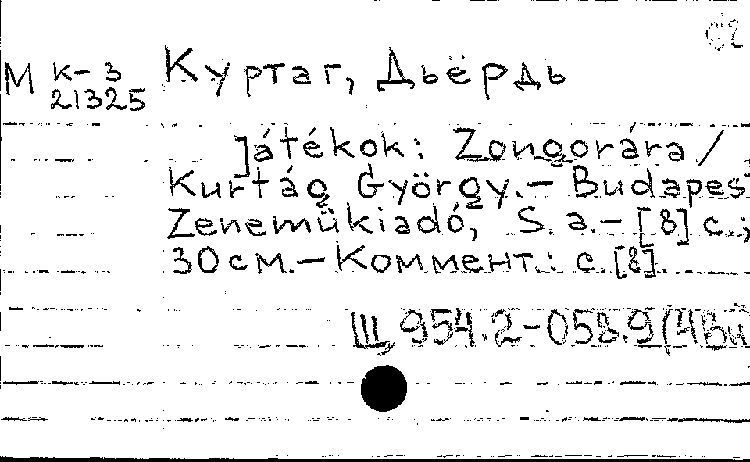 М К-3 Куртаг, Дьёрдь
21325
Játékok: Zongorára /
Kurtág György.— Budapes
Zeneműkiadó, S. a.— [8] с.;
30 см.— Коммент.: с. [8].
Щ 954.2-058.9(4Ви